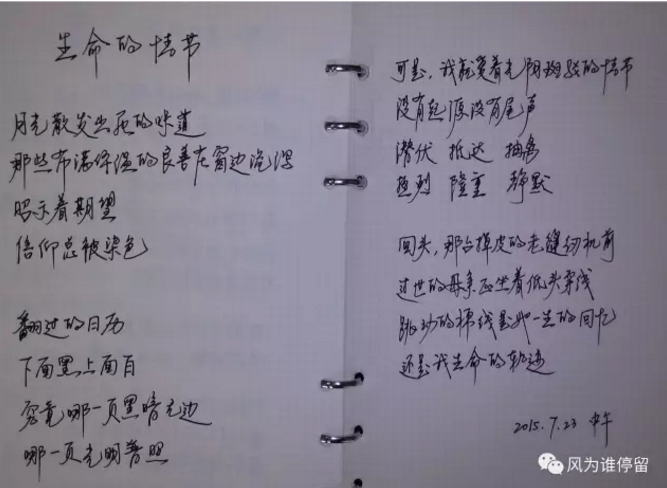 生命的情节
月光散发出死的味道
那些布满体温的良善在窗边沉浮
昭示着期望
信仰总被染色
翻过的日历
下面黑上面白
究竟哪一页黑暗无边
哪一页光明普照
可是，我就爱着光阴斑驳的情节
没有起源没有尾声
潜伏 抵达 抽离
热烈 隆重 静默
回头，那台掉皮的老缝纫机前
过世的母亲正坐着低头穿线
跳动的棉线是她一生的回忆
还是我生命的轨迹
2015.7.23 中午
风为谁停留